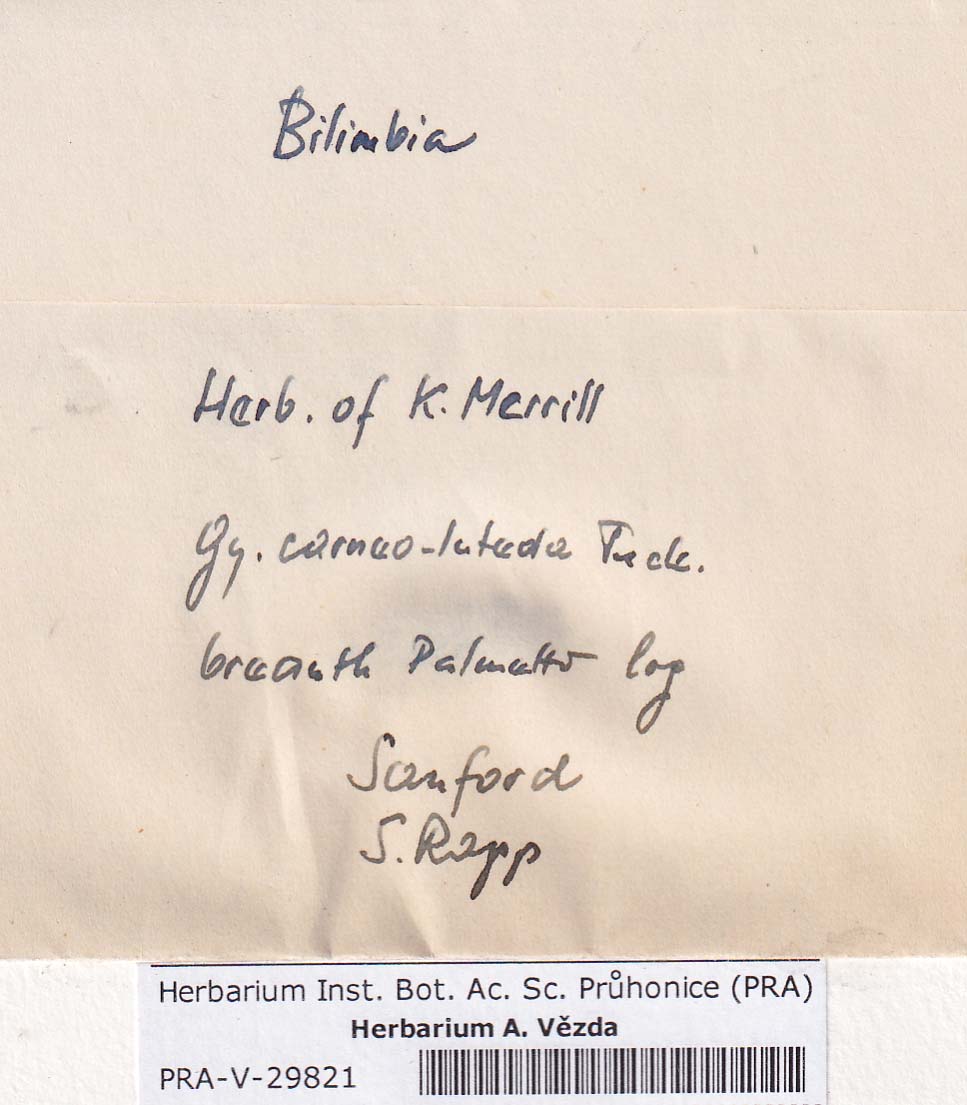 Bilimbia
Herb. of K. Merrill
Gy. carneo-luteola Tuck.
Palmetto log
Sanford
S. Rapp
Herbarium Inst. Bot. Ac. Sc. Průhonice (PRA)
Herbarium A. Vězda
PRA-V-29821